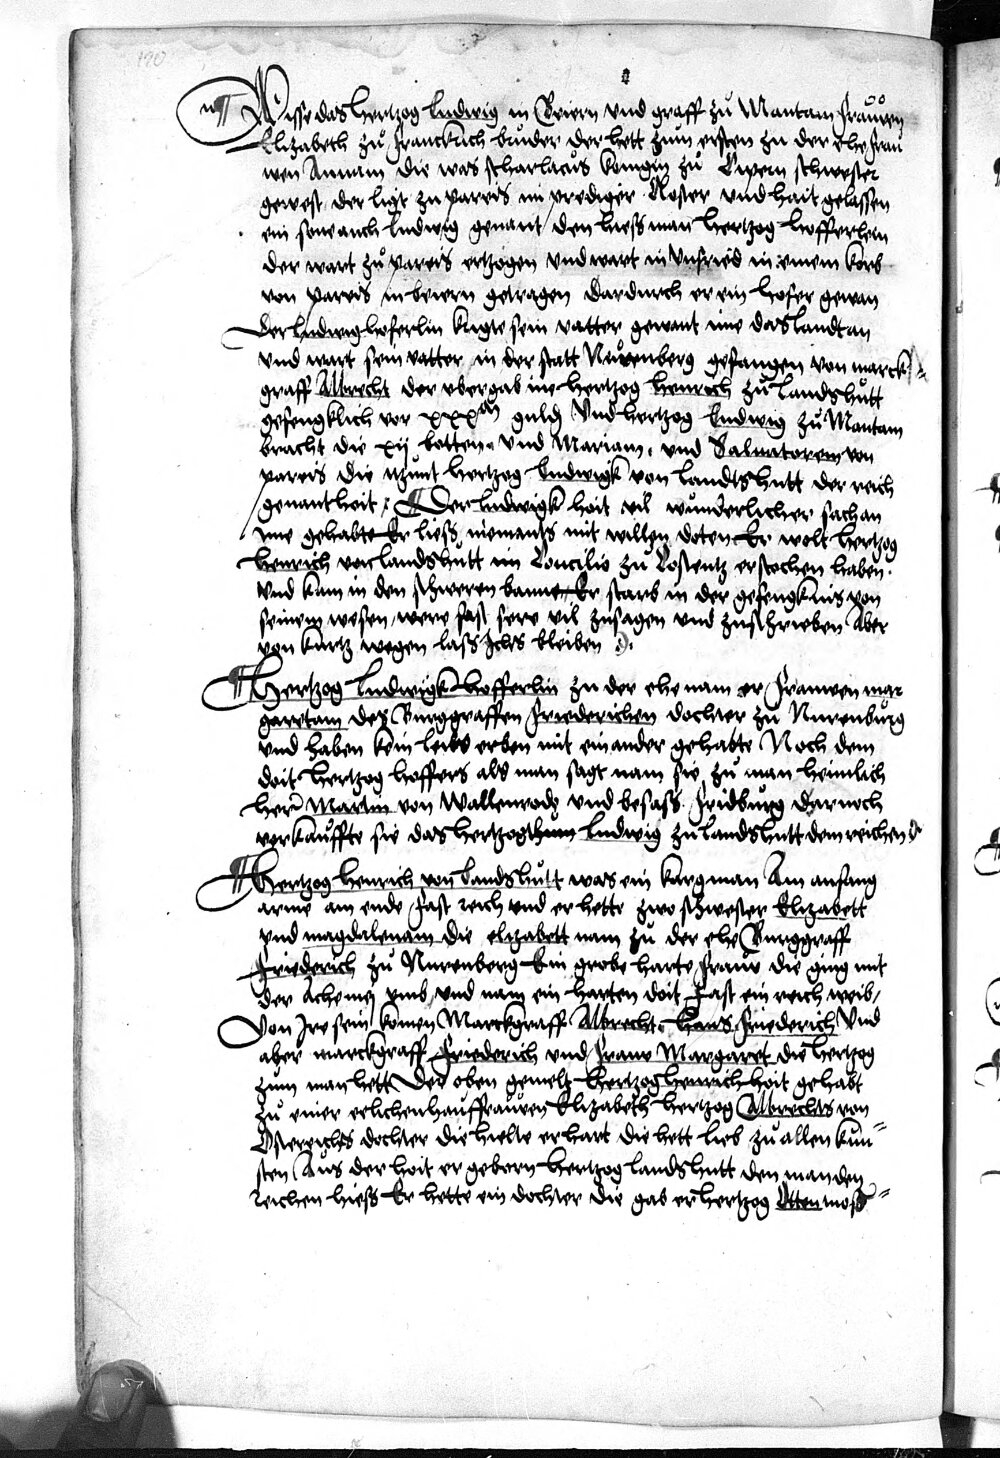 190
Wisse das hertzog Ludwig in Beiern vnd graff zů Mantam frauwen
Elizabeth zů Franckrich bruder der hett zum ersten zu der ehe frau
wen Annam die was scharlacus konigin zů Cipern schwester
gewest der ligt zu pareis im prediger Closter vnd hait gelassen
ein sone auch Ludwig genant den hiess man hertzog hofferlein
der wart zů pareis ertzogen vnd wart in vnfried in einem korb
von pareis in beiern getragen dardurch er ein hofer gewan
Der Ludwig hoferlin krigte sein vatter gewant ime das landt an
vnd wart sein vatter in der statt Neuwenberg gefangen von marck
graff Albrecht der vbergab ine hertzog Henrich zů Landshutt
gefengklich vor xxxm guld vnd hertzog Ludwig zů Mantam
bracht die xij botten vnd Mariam vnd Saluatorem von
pareis die itzunt hertzog Ludwigk von Landtshutt der reich
genant hoit Der Ludwigk hoit vil wunderlicher sach an
ime gehabte Er liess niemants mit willen doten Er wolt hertzog
Henrich von landshutt im Concilio zů Costentz erstochen haben
vnd kam in den schweren banne Er starb in der gefengknis von
seinem wesen were fast sere vil zusagen vnd zuschrieben Aber
von kurtz wegen lass Ichs bleiben
Hertzog Ludwigk Hofferlin zu der ehe nam er Frauwen mar
garetam des Burggraffen Friederichen dochter zů Nurenburg
vnd haben kein leibs erben mit einander gehabte Noch dem
doit hertzog hoffers als man sagt nam sie zů man heimlich
hern Martin von Wallenrode vnd besass Fridburg darnoch
verkauffte sie das hertzogthum Ludwig zu landshutt dem reichen
Hertzog Henrich von Landshutt was ein karg man Am anfang
arme am ende fast reich vnd er hette zwo schwester Elizabett
vnd magdalenam die elizabett nam zů der ehe Burggraff
Friederich zů Nurenberg Ein grobe harte frauw die ging mit
der vmb vnd nam ein harten doit fast ein reich weib
Von Ire sein komen Marckgraff Albrecht Hans Friederich vnd
aber marckgraff Friederich vnd frauw Margaret die hertzog
zum man hett Der oben gemelt Hertzog Henrich hoit gehabt
zů einer erlichen hauffrauwen Elizabeth hertzog Albrechts von
Osterreichs dochter die hielte er hart die hett lieb zů allen kun
sten Aus der hoit er geborn hertzog landshutt den man den
Reichen hiess Er hette ein dochter die gab er hertzog Otten